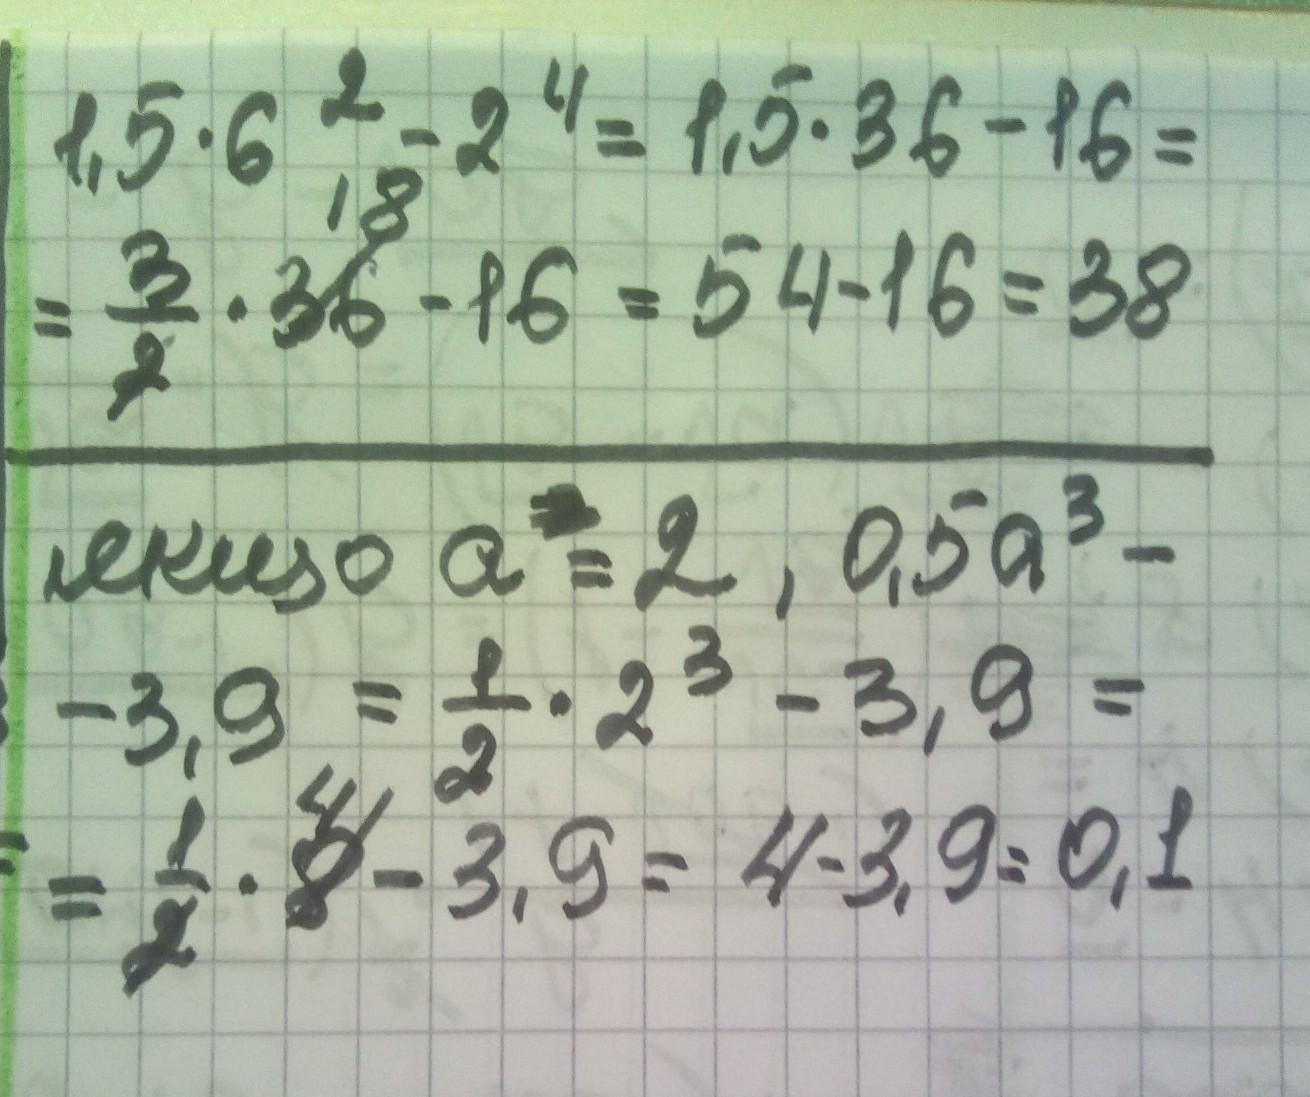 1,5·6² - 2⁴ = 1,5·36 - 16 =
18
= 3/2 · 36 - 16 = 54 - 16 = 38
якщо a = 2, 0,5a³ -
- 3,9 = 1/2 · 2³ - 3,9 =
4
= 1/2 · 8 - 3,9 = 4 - 3,9 = 0,1